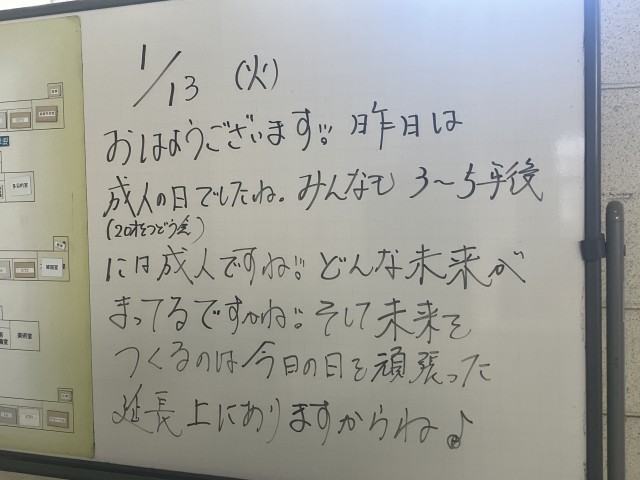 1/13 (火)
おはようございます!! 昨日は
成人の日でしたね。みんなも 3~5年後
(20才をつどう会)
には成人ですね!! どんな未来が
まってるですかね!! そして未来を
つくるのは今日の日を頑張った
延長上にありますからね♪
美術室